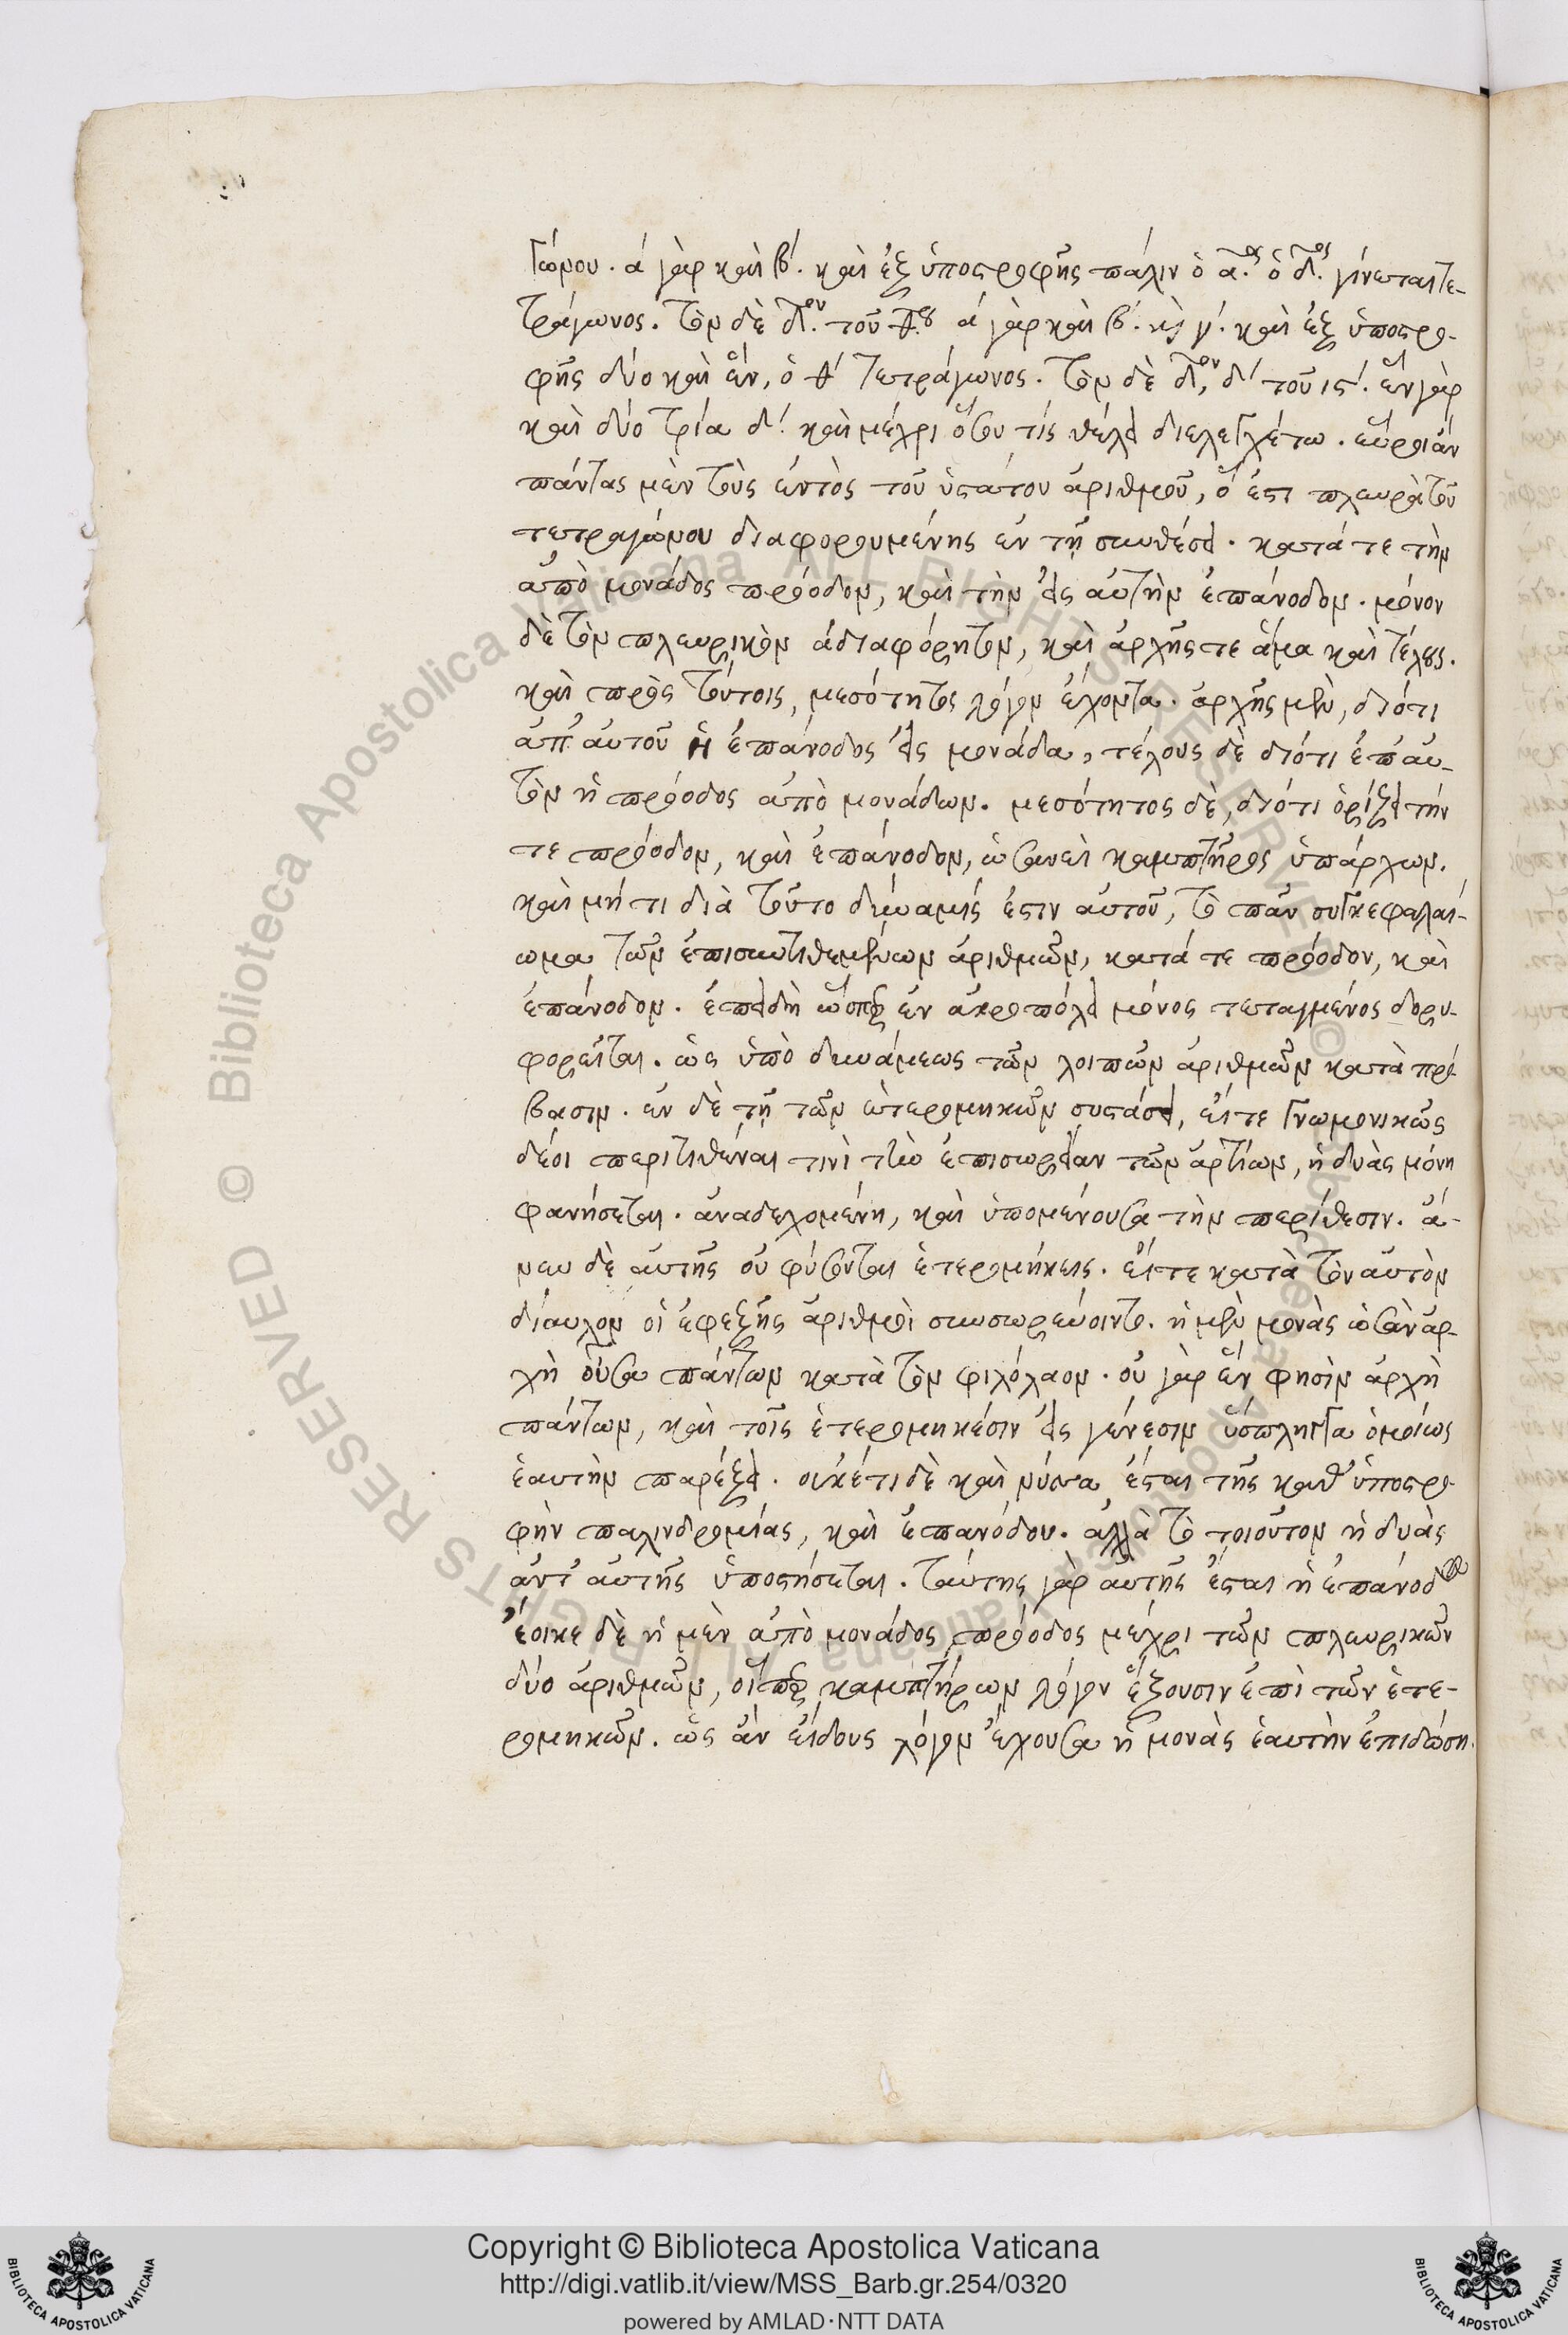 γώνου. ά γὰρ καὶ β́. καὶ ἐξ ὑποστροφῆς πάλιν ὁ α.ος ὁ δ.ος γίνεται τε-
τράγωνος. τὸν δὲ δ.ον τοῦ θ.ου ά γὰρ καὶ β́. κ̀ γ́. καὶ ἐξ ὑποστρο-
φῆς δύο καὶ ἓν, ὁ θ́ τετράγωνος. τὸν δὲ δ,ον δ́ τοῦ ις́. ἓν γὰρ
καὶ δύο τρία δ́. καὶ μέχρι ὅτου τίς θέλει διελεγχέτω. εὕροι ἄν
πάντας μὲν τοὺς ἐντὸς τοῦ ὑστάτου ἀριθμοῦ, ὅ ἐστι πλευρὰ τοῦ
τετραγώνου διαφορουμένης ἐν τῇ συνθέσει. κατά τε τὴν
ἀπὸ μονάδος πρόοδον, καὶ τὴν εἰς αὐτὴν ἐπάνοδον. μόνον
δὲ τὸν πλευρικὸν ἀδιαφόρητον, καὶ ἀρχῆς τε ἅμα καὶ τέλους.
καὶ πρὸς τούτοις, μεσότητος λόγον ἔχοντα. ἀρχῆς μὲν, διότι
ἀπ' αὐτοῦ ἡ ἐπάνοδος εἰς μονάδα, τέλους δὲ διότι ἐπ' αὐ-
τὸν ἡ πρόοδος ἀπὸ μονάδων. μεσότητος δὲ, διότι ὁρίζει τήν
τε πρόοδον, καὶ ἐπάνοδον, ὡσανεὶ καμπτῆρος ὑπάρχων.
καὶ μή τι διὰ τοῦτο δύναμίς ἐστιν αὐτοῦ, τὸ πᾶν συγκεφαλαί-
ωμα τῶν ἐπισυντιθεμένων ἀριθμῶν, κατά τε πρόοδον, καὶ
ἐπάνοδον. ἐπειδὴ ὥσπερ ἐν ἀκροπόλει μόνος τεταγμένος δορυ-
φορεῖται. ὡς ὑπὸ δυνάμεως τῶν λοιπῶν ἀριθμῶν κατὰ πρό-
βασιν. ἐν δὲ τῇ τῶν ἑτερομηκῶν συστάσει, εἴτε γνωμονικῶς
δέοι περιτιθέναι τινὶ τὴν ἐπισωρείαν τῶν ἀρτίων, ἡ δυὰς μόνη
φανήσεται. ἀναδεχομένη, καὶ ὑπομένουσα τὴν περίθεσιν. ἄ-
νευ δὲ αὐτῆς οὐ φύσονται ἑτερομήκεις. εἴτε κατὰ τὸν αὐτὸν
δίαυλον οἱ ἐφεξῆς ἀριθμοὶ συσσωρεύοιντο. ἡ μὲν μονὰς ὡσὰν ἀρ-
χὴ οὖσα πάντων κατὰ τὸν φιλόλαον. οὐ γὰρ ἕν φησὶν ἀρχὴ
πάντων, καὶ τοῖς ἑτερομηκέσιν εἰς γένεσιν ὕσπληγγα ὁμοίως
ἑαυτὴν παρέξει. οὐκέτι δὲ καὶ νύσσα ἔσται τῆς καθ' ὑποστρο-
φὴν παλινδρομίας, καὶ ἐπανόδου. ἀλλὰ τὸ τοιοῦτον ἡ δυὰς
ἀντ' αὐτῆς ὑποστήσεται. ταύτης γὰρ αὐτῆς ἔσται ἡ ἐπάνοδος
ἔοικε δὲ ἡ μὲν ἀπὸ μονάδος πρόοδος μέχρι τῶν πλευρικῶν
δύο ἀριθμῶν, οἵπερ καμπτήρων λόγον ἕξουσιν ἐπὶ τῶν ἑτε-
ρομηκῶν. ὡς ἂν εἴδους λόγον ἔχουσα ἡ μονὰς ἑαυτὴν ἐπιδώσῃ.
Copyright © Biblioteca Apostolica Vaticana
http://digi.vatlib.it/view/MSS_Barb.gr.254/0320
powered by AMLAD·NTT DATA
BIBLIOTECA APOSTOLICA VATICANA
BIBLIOTECA APOSTOLICA VATICANA
© Biblioteca Apostolica Vaticana ALL RIGHTS RESERVED
© Biblioteca Apostolica Vaticana ALL RIGHTS RESERVED